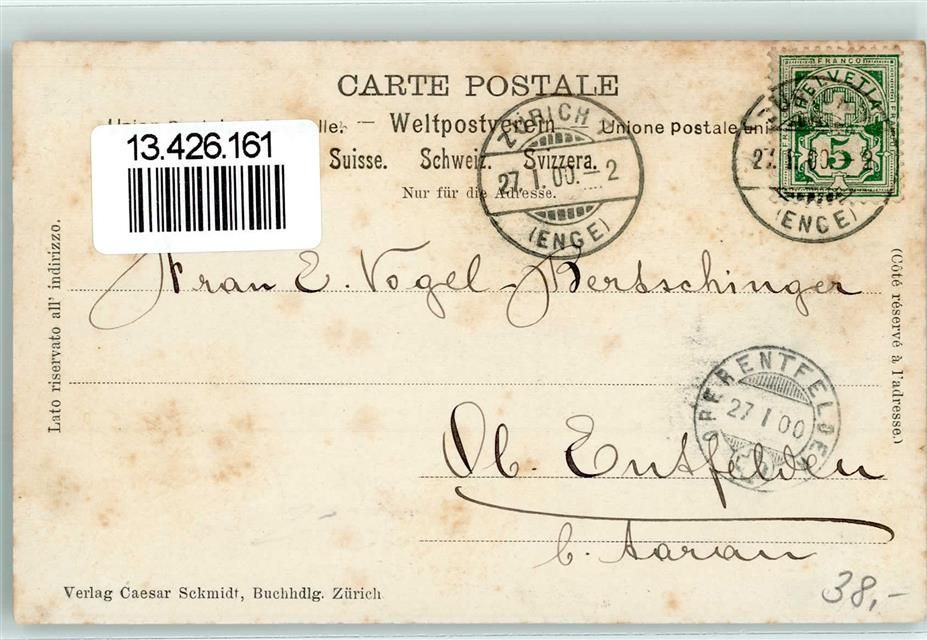 CARTE POSTALE
— Weltpostverein Unione Postale uni
13.426.161
Suisse. Schweiz. Svizzera.
Nur für die Adresse.
ZÜRICH
27. I. 00. – 2
(ENGE)
FRANCO
HELVETIA
5
27. I. 00. 2
(ENGE)
Lato riservato all' indirizzo.
(Côté réservé à l'adresse.)
Frau E. Vogel-Bertschinger
OBERENTFELDEN
27 I 00
Ob. Entfelden
b. Aarau
Verlag Caesar Schmidt, Buchhdlg. Zürich
38,-